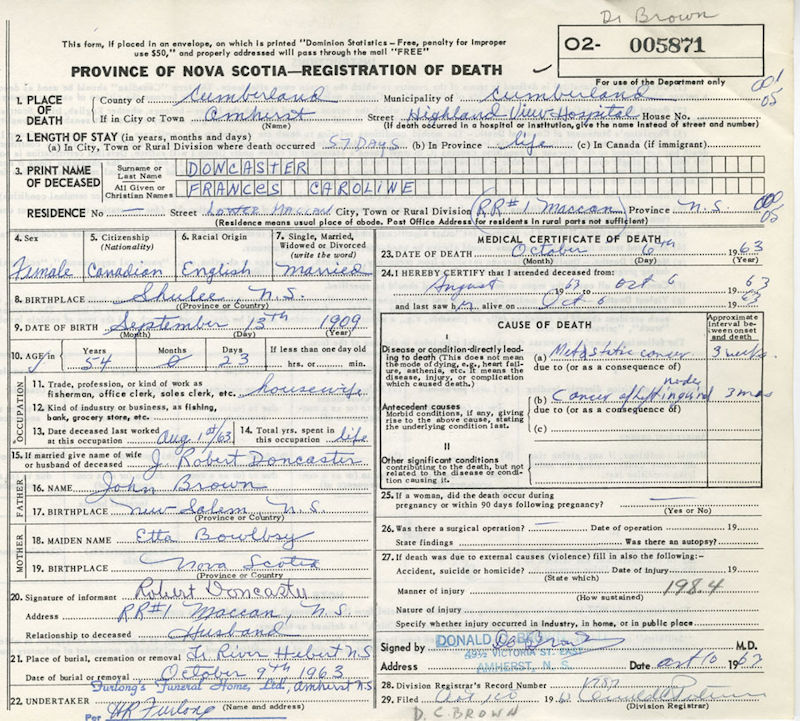 Dr Brown
This form, if placed in an envelope, on which is printed "Dominion Statistics – Free, penalty for improper
use $50," and properly addressed will pass through the mail "FREE"
02- 005871
PROVINCE OF NOVA SCOTIA—REGISTRATION OF DEATH
For use of the Department only
001
05
1. PLACE OF DEATH
County of Cumberland Municipality of Cumberland
If in City or Town Amherst Street Highland View Hospital House No.
(Name) (If death occurred in a hospital or institution, give the name instead of street and number)
2. LENGTH OF STAY (in years, months and days)
(a) In City, Town or Rural Division where death occurred 57 Days (b) In Province life (c) In Canada (if immigrant)
3. PRINT NAME OF DECEASED
Surname or Last Name DONCASTER
All Given or Christian Names FRANCES CAROLINE
RESIDENCE No — Street Lower Maccan City, Town or Rural Division RR#1 Maccan Province N.S.
000
05
(Residence means usual place of abode. Post Office Address for residents in rural parts not sufficient)
4. Sex 5. Citizenship (Nationality) 6. Racial Origin 7. Single, Married, Widowed or Divorced (write the word)
Female Canadian English Married
8. BIRTHPLACE Shulee, N.S.
(Province or Country)
9. DATE OF BIRTH September 13th 1909
(Month) (Day) (Year)
10. AGE in Years Months Days If less than one day old
54 0 23 hrs. or min.
OCCUPATION
11. Trade, profession, or kind of work as
fisherman, office clerk, sales clerk, etc. housewife
12. Kind of industry or business, as fishing,
bank, grocery store, etc.
13. Date deceased last worked at this occupation Aug 1st/63 14. Total yrs. spent in this occupation life
15. If married give name of wife
or husband of deceased J. Robert Doncaster
FATHER
16. NAME John Brown
17. BIRTHPLACE New Salem N.S.
(Province or Country)
MOTHER
18. MAIDEN NAME Etta Bowlby
19. BIRTHPLACE Nova Scotia
(Province or Country
20. Signature of informant Robert Doncaster
Address RR#1 Maccan, N.S.
Relationship to deceased Husband
21. Place of burial, cremation or removal River Hebert N.S
Date of burial or removal October 9th 1963
Furlong's Funeral Home, Ltd., Amherst N.S.
22. UNDERTAKER (Name and address)
Per HR Furlong
MEDICAL CERTIFICATE OF DEATH
23. DATE OF DEATH October 6th 1963
(Month) (Day) (Year)
24. I HEREBY CERTIFY that I attended deceased from:
August 1963 to Oct 6 1963
and last saw h alive on Oct 6 1963
CAUSE OF DEATH
Approximate interval between onset and death
I
Disease or condition directly leading to death (This does not mean the mode of dying, e.g., heart failure, asthenia, etc. It means the disease, injury, or complication which caused death.)
(a) Metastatic cancer 3 weeks
due to (or as a consequence of)
nodes
(b) Cancer of left inguinal 3 mos
due to (or as a consequence of)
Antecedent causes
Morbid conditions, if any, giving rise to the above cause, stating the underlying condition last.
(c)
II
Other significant conditions
contributing to the death, but not related to the disease or condition causing it.
25. If a woman, did the death occur during
pregnancy or within 90 days following pregnancy? —
(Yes or No)
26. Was there a surgical operation? — Date of operation 19
State findings Was there an autopsy?
27. If death was due to external causes (violence) fill in also the following:–
Accident, suicide or homicide? Date of injury 19
(State which)
Manner of injury 198.4
(How sustained)
Nature of injury
Specify whether injury occurred in industry, in home, or in public place
DONALD C. BROWN
Signed by M.D.
VICTORIA ST. EAST
Address AMHERST, N. S. Date Oct 10 1963
28. Division Registrar's Record Number 1787
29. Filed Oct 10 19
(Division Registrar)
D. C. BROWN